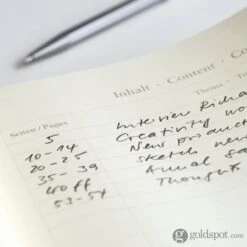 Inhalt · Content · Co
Thema · T
Seiten / Pages
5 Interview Richa
10 - 14 Creativity wo
20 - 25 New product
35 - 39 Sketch new
40 ff Annual sa
53 - 54 Thoughts
goldspot.com